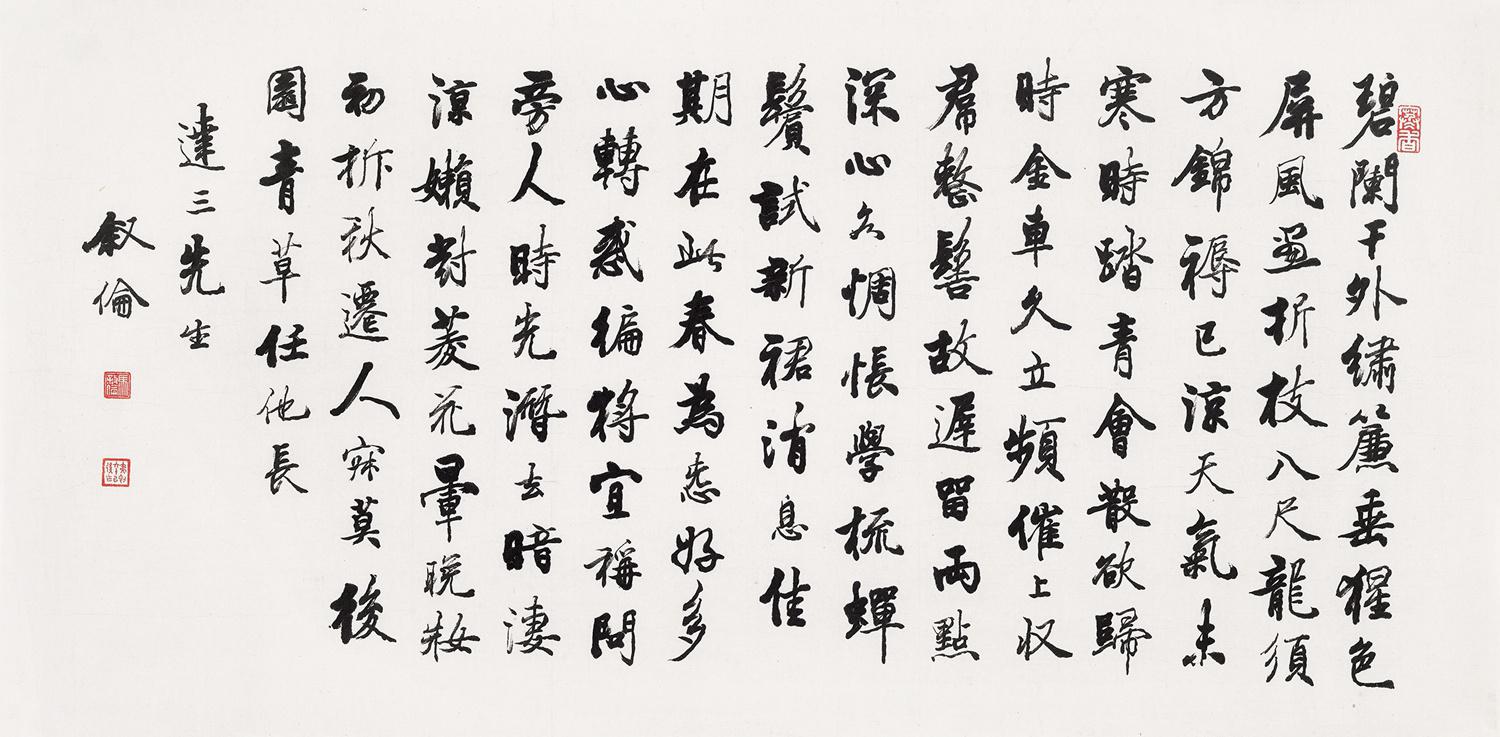 碧闌干外繡簾垂猩色
屏風畫折枝八尺龍須
方錦褥已涼天氣未
寒時踏青會散欲歸
時金車久立頻催上収
帬整髻故遲留兩點
深心各惆悵學梳蟬
鬢試新裙消息佳
期在此春為愛好多
心轉惑徧將宜稱問
旁人時光潛去暗淒
涼嬾對菱花暈晚妝
初拆秋遷人寂莫後
園青草任他長
達三先生
叙倫